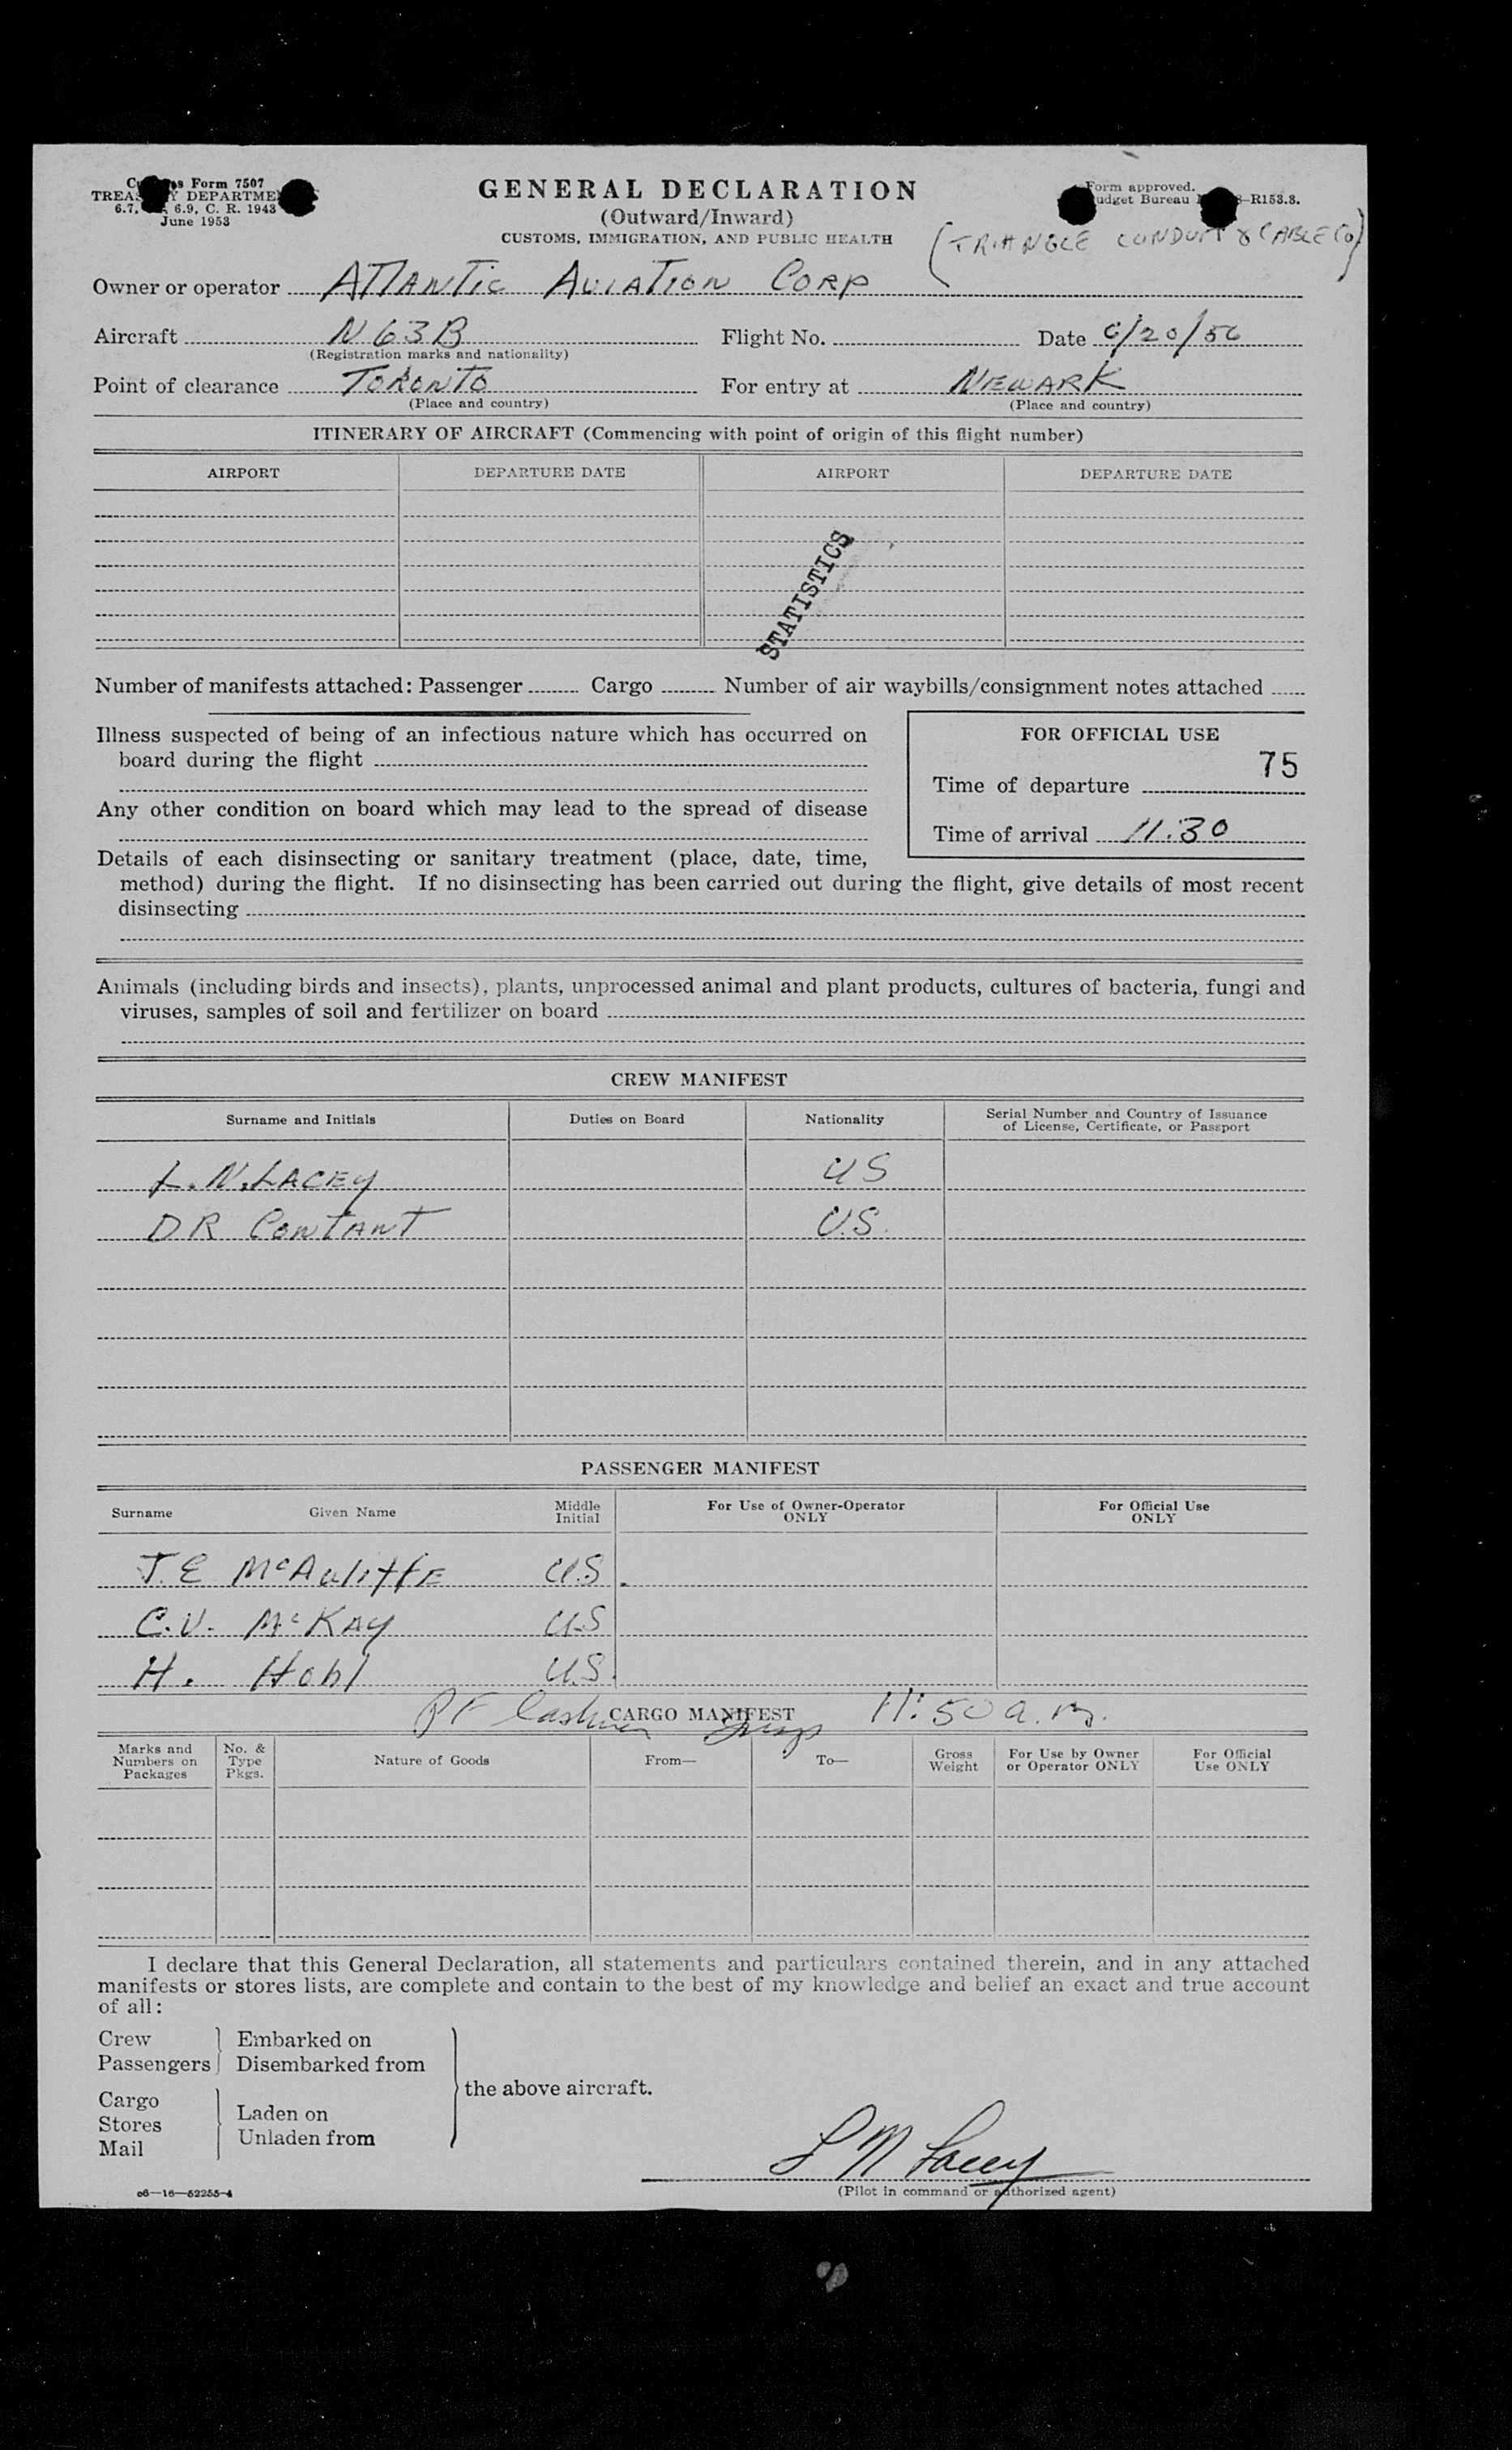 Customs Form 7507
TREASURY DEPARTMENT
6.7, 6.9, C. R. 1943
June 1953
GENERAL DECLARATION
(Outward/Inward)
CUSTOMS, IMMIGRATION, AND PUBLIC HEALTH
Form approved.
Budget Bureau -R153.3.
(TRIANGLE CONDUIT & CABLE CO)
Owner or operator ATLANTIC AVIATION CORP
Aircraft N63B Flight No. Date 6/20/56
(Registration marks and nationality)
Point of clearance TORONTO For entry at NEWARK
(Place and country) (Place and country)
ITINERARY OF AIRCRAFT (Commencing with point of origin of this flight number)
AIRPORT DEPARTURE DATE AIRPORT DEPARTURE DATE
STATISTICS
Number of manifests attached: Passenger Cargo Number of air waybills/consignment notes attached
Illness suspected of being of an infectious nature which has occurred on
board during the flight
Any other condition on board which may lead to the spread of disease
FOR OFFICIAL USE
75
Time of departure
Time of arrival 11:30
Details of each disinsecting or sanitary treatment (place, date, time,
method) during the flight. If no disinsecting has been carried out during the flight, give details of most recent
disinsecting
Animals (including birds and insects), plants, unprocessed animal and plant products, cultures of bacteria, fungi and
viruses, samples of soil and fertilizer on board
CREW MANIFEST
Surname and Initials Duties on Board Nationality Serial Number and Country of Issuance
of License, Certificate, or Passport
L. N. LACEY US
DR CONTANT U.S.
PASSENGER MANIFEST
Surname Given Name Middle
Initial For Use of Owner-Operator
ONLY For Official Use
ONLY
J.E McAuliffE U.S.
C.V. McKAY U.S
H. Hohl U.S.
CARGO MANIFEST
PF 11:50 a.m.
Marks and
Numbers on
Packages No. &
Type
Pkgs. Nature of Goods From— To— Gross
Weight For Use by Owner
or Operator ONLY For Official
Use ONLY
I declare that this General Declaration, all statements and particulars contained therein, and in any attached
manifests or stores lists, are complete and contain to the best of my knowledge and belief an exact and true account
of all:
Crew Embarked on
Passengers Disembarked from
the above aircraft.
Cargo
Stores Laden on
Mail Unladen from
L N Lacey
(Pilot in command or authorized agent)
c6—16—52255-4